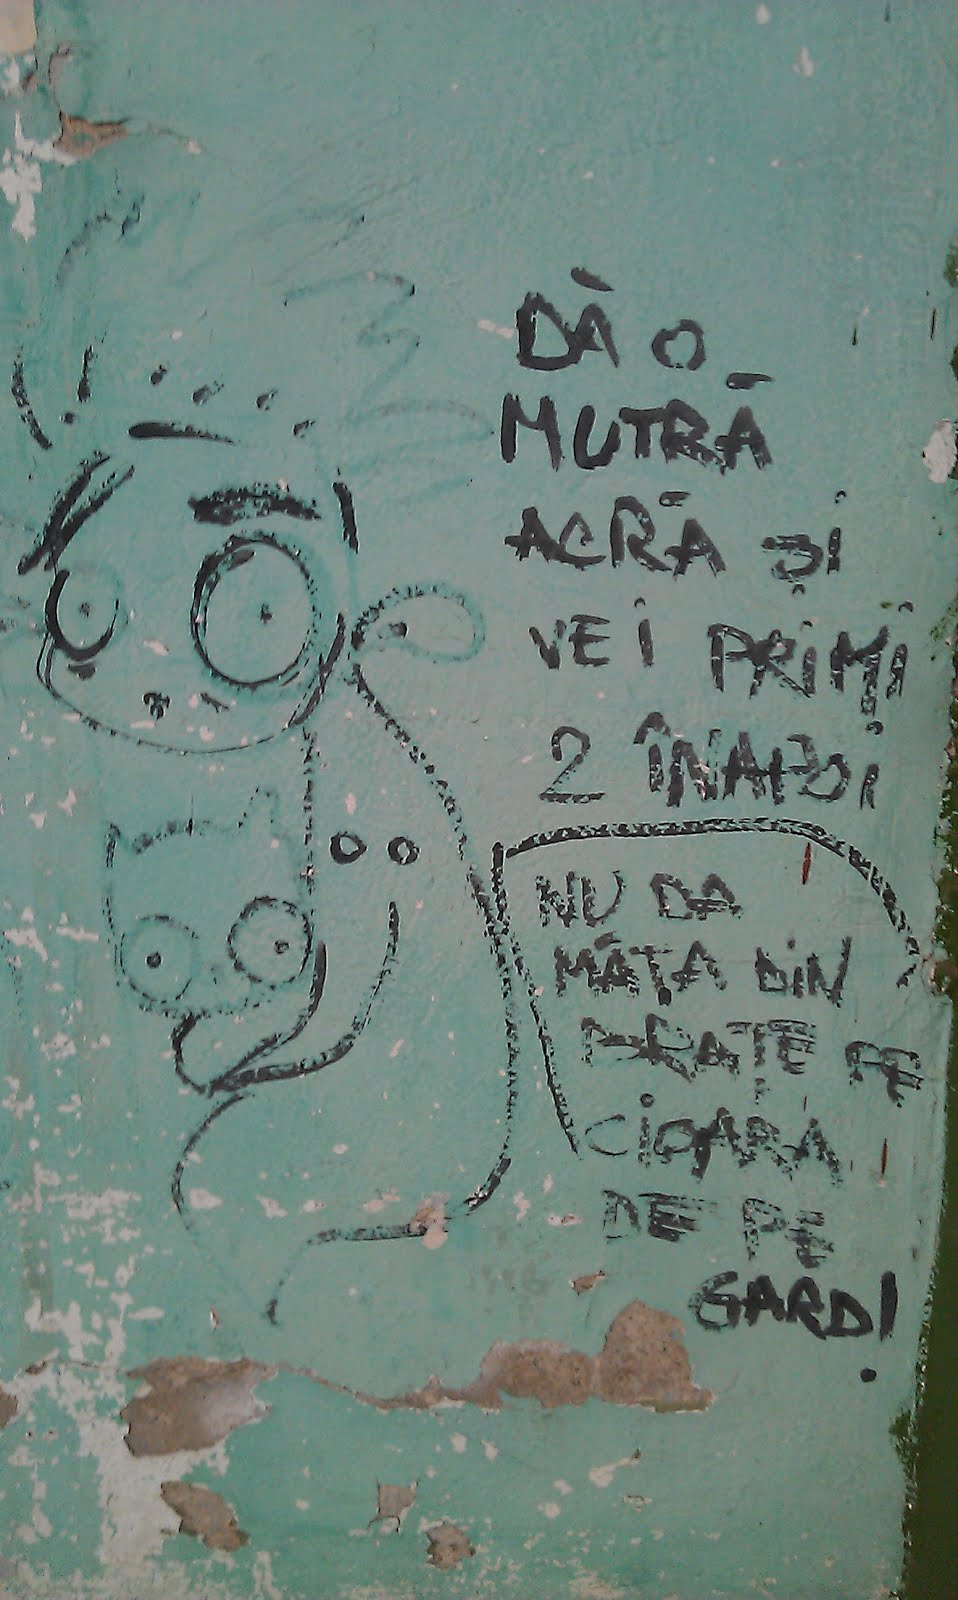 DĂ O
MUTRĂ
ACRĂ ȘI
VEI PRIMI
2 ÎNAPOI
NU DA
MÂȚA DIN
BRAȚE PE
CIOARA
DE PE
GARD!